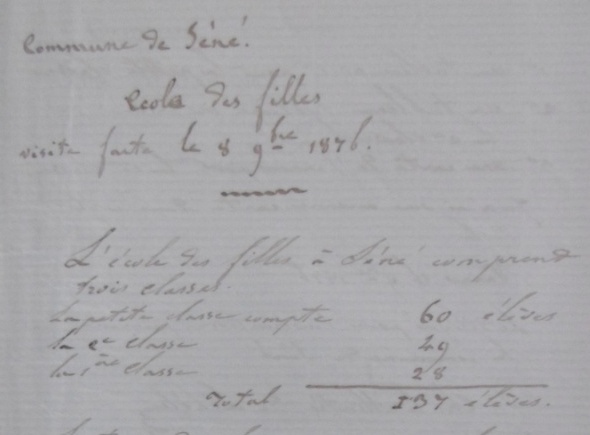 Commune de Séné.
Ecole des filles
visite faite le 8 9bre 1876.
L'école des filles à Séné comprend
trois classes.
La petite classe compte 60 élèves
la 2e classe 49
la 1ère classe 28
Total 137 élèves.